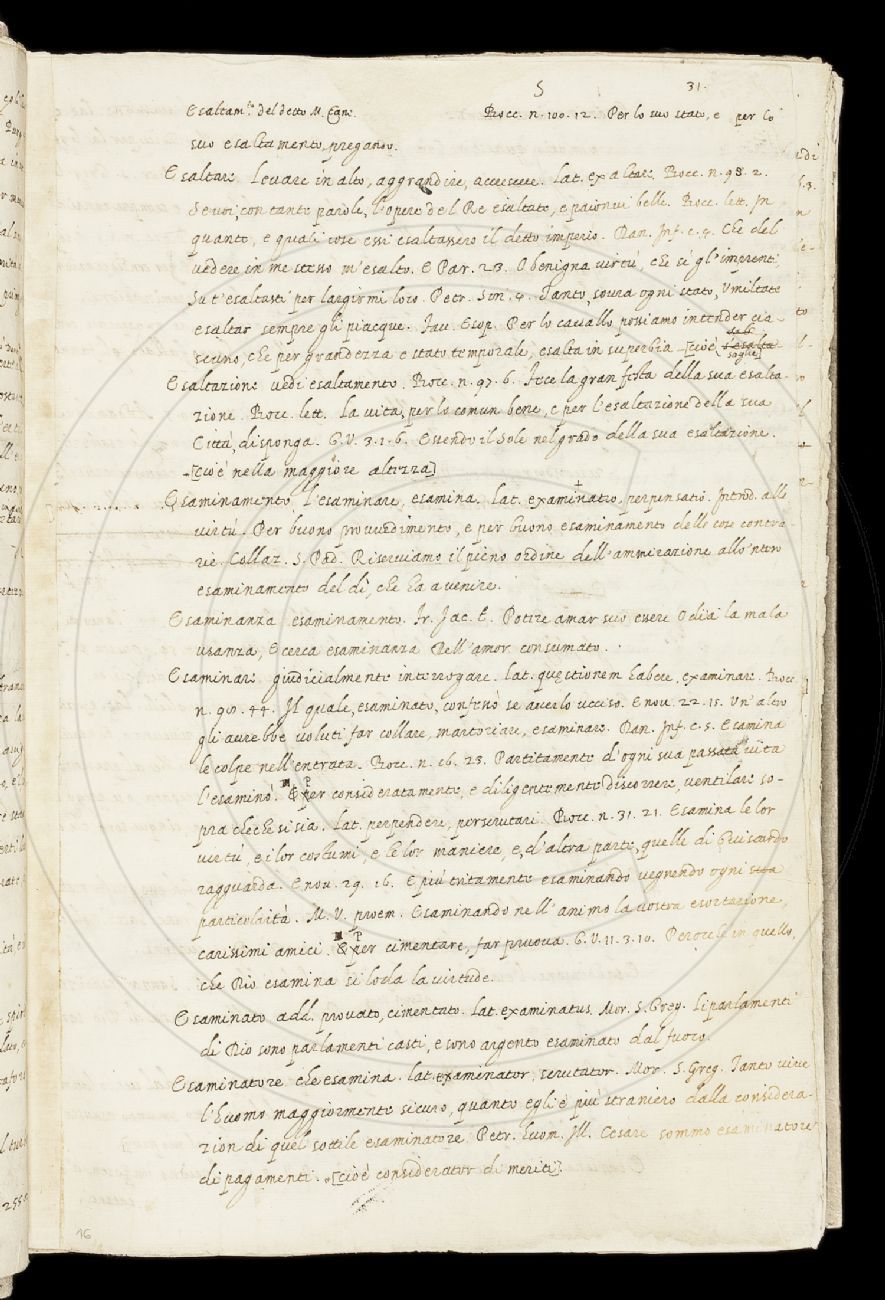 S 31.
Esaltam.to del detto M. Cane. Bocc. n. 100. 12. Per lo suo stato, e per lo
suo esaltamento, pregano.
Esaltare levare in alto, aggrandire, accrescere. lat. exaltare. Bocc. n. 98. 2.
Se voi, con tante parole, l'opere del Re esaltate, e paionvi belle. Bocc. lett. In
quante, e quali cose essi esaltassero il detto imperio. Dan. Inf. c. 4. Che del
vedere in me stesso m'esalto. E Par. 23. O benigna virtù, che sì gl'imprenti
Su t'esaltasti per largirmi loco. Petr. Son. 4. Tanto, sovra ogni stato, Umiltate
esaltar sempre gli piacque. Fav. Esop. Per lo cavallo possiamo intender cia-
scuno, che per grandezza e stato temporale, esalta in superbia [cioè
Esaltazione vedi esaltamento. Bocc. n. 97. 6. Fece la gran festa della sua esalta-
zione. Bocc. lett. La vita, per lo comun bene, e per l'esaltazione della sua
Città, disponga. G. V. 3. 1. 6. Essendo il Sole nel grado della sua esaltazione.
[cioè nella maggiore altezza]
Esaminamento l'esaminare, esamina. lat. examinatio, perpensatio. Introd. alle
virtù. Per buono provvedimento, e per buono esaminamento delle cose contra-
rie. Collaz. S. Pad. Riserviamo il pieno ordine dell'ammirazione allo'ntero
esaminamento del dì, che ha a venire.
Esaminanza esaminamento. Fr. Jac. T. Potire amar suo essere Odia la mala
usanza, E cerca esaminanza Nell'amor consumato.
Esaminare giudicialmente interrogare. lat. quęstionem habere, examinare. Bocc.
n. 90. 44. Il quale, esaminato, confessò se averlo ucciso. E nov. 22. 15. Un'altro
gli avrebbe voluti far collare, martoriare, esaminare. Dan. Inf. c. 5. Esamina
le colpe nell'entrata. Bocc. n. 16. 23. Partitamente d'ogni sua passata vita
l'esaminò. Per consideratamente, e diligentemente discorrere, ventilare so-
pra checchesisia. lat. perpendere, perscrutari. Bocc. n. 31. 21. Esamina le lor
virtù, e i lor costumi, e le lor maniere, e, d'altra parte, quelle di Guiscardo
ragguarda. E nov. 29. 16. E più tritamente esaminando vegnendo ogni
particolarità. M. V. proem. Esaminando nell'animo la vostra esortazione,
carissimi amici. Per cimentare, far pruova. G. V. 11. 3. 10. Perocchè in quello,
che Dio esamina si loda la virtude.
Esaminato add. provato, cimentato. lat. examinatus. Mor. S. Greg. li parlamenti
di Dio sono parlamenti casti, e sono argento esaminato dal fuoco.
Esaminatore che esamina. lat. examinator, scrutator. Mor. S. Greg. Tanto vive
l'huomo maggiormente sicuro, quanto egli è più straniero dalla considera-
zion di quel sottile esaminatore. Petr. huom. Ill. Cesare sommo esaminatore
di pagamenti. [cioè considerator di meriti].
16